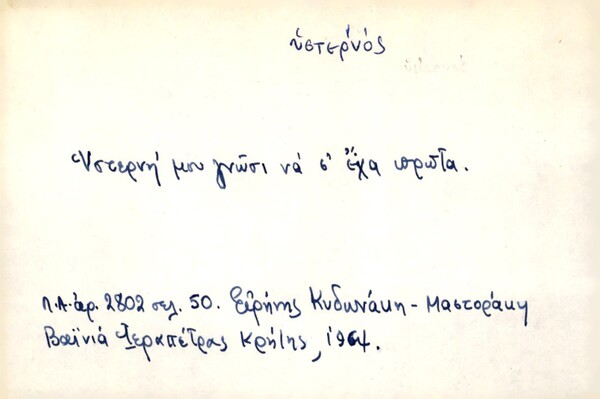 ὑστερνός
Ὑστερνή μου γνῶσι νά σ' εἶχα πρῶτα.
Λ.Α. ἀρ. 2802 σελ. 50. Εἰρήνης Κυδωνάκη - Μαστοράκη
Βαϊνιά Ἱεραπέτρας Κρήτης, 1964.